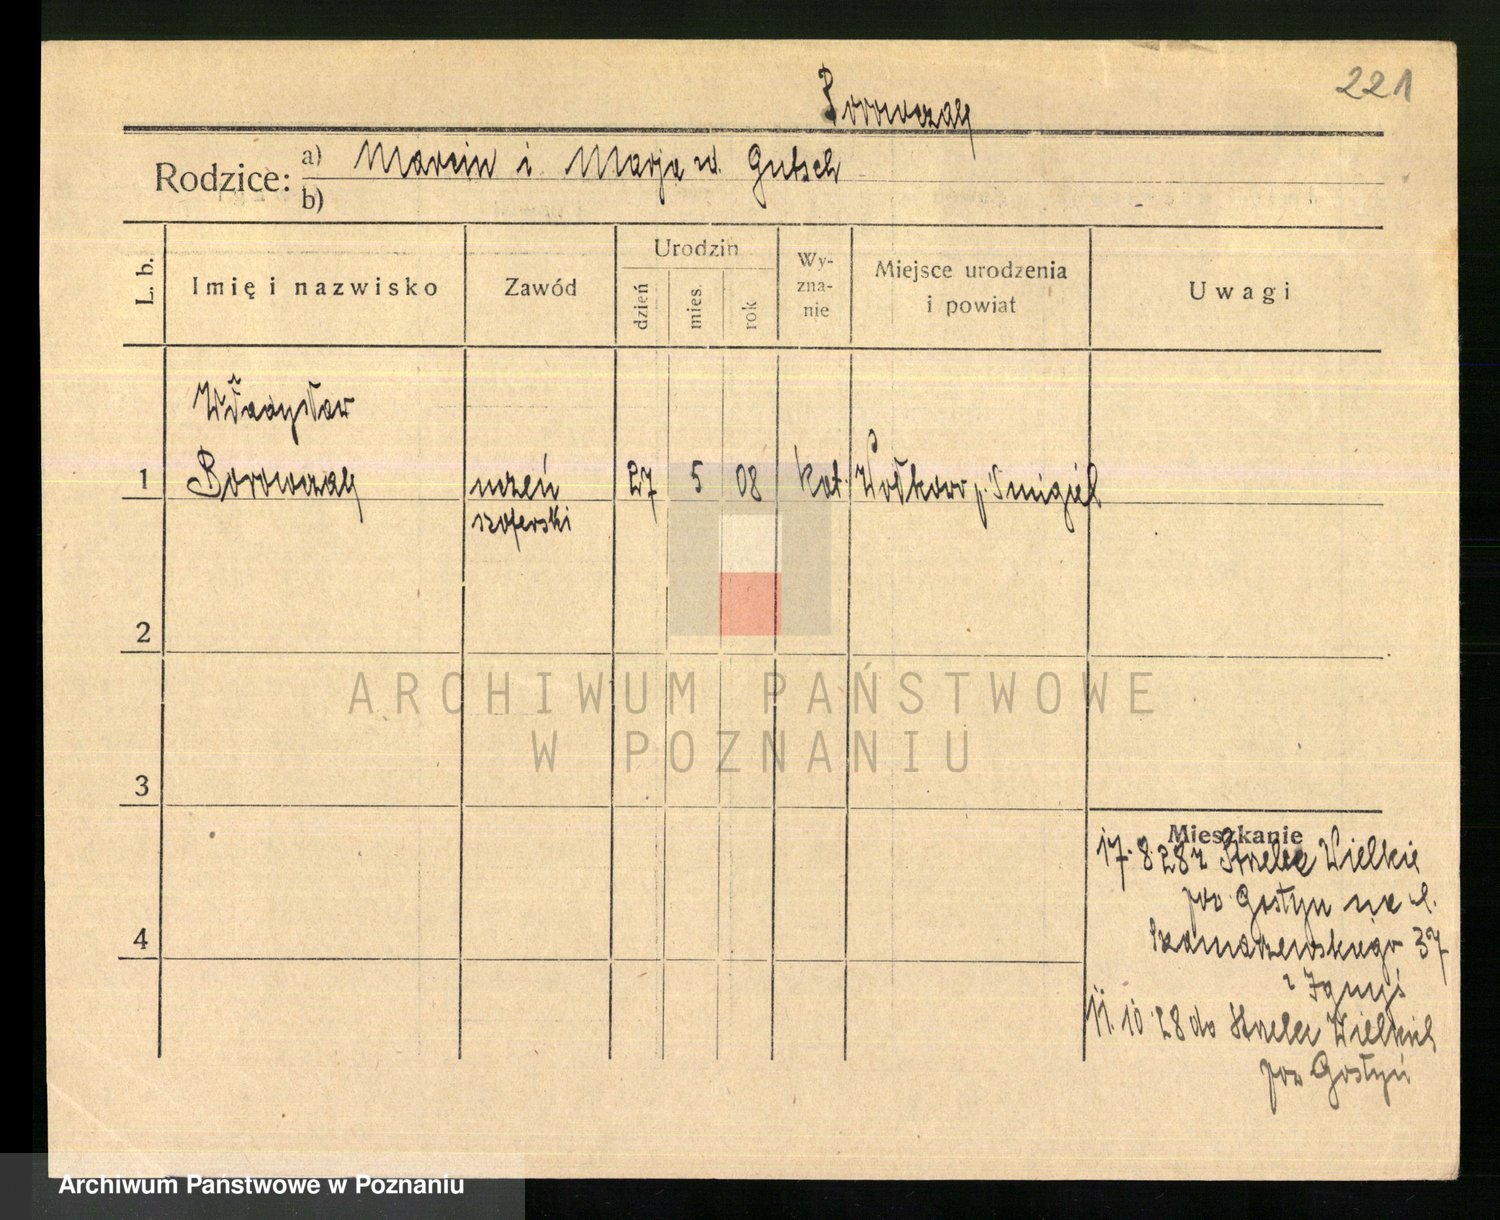 221
Borowczak
Rodzice: a) Marcin i Marja ur. Gutsch
b)
L. b.
Imię i nazwisko
Zawód
Urodzin
dzień
mies.
rok
Wy-
zna-
nie
Miejsce urodzenia
i powiat
Uwagi
Władysław
1 Borowczak uczeń 27 5 08 kat. Wołkowo p. Śmigiel
szoferski
2
ARCHIWUM PAŃSTWOWE
W POZNANIU
3
Mieszkanie
17.8.28 z Strzelce Wielkie
pow Gostyn na ul.
4
Szamarzewskiego 37
11.10.28 do Strzelce Wielkich
pow Gostyń
Archiwum Państwowe w Poznaniu